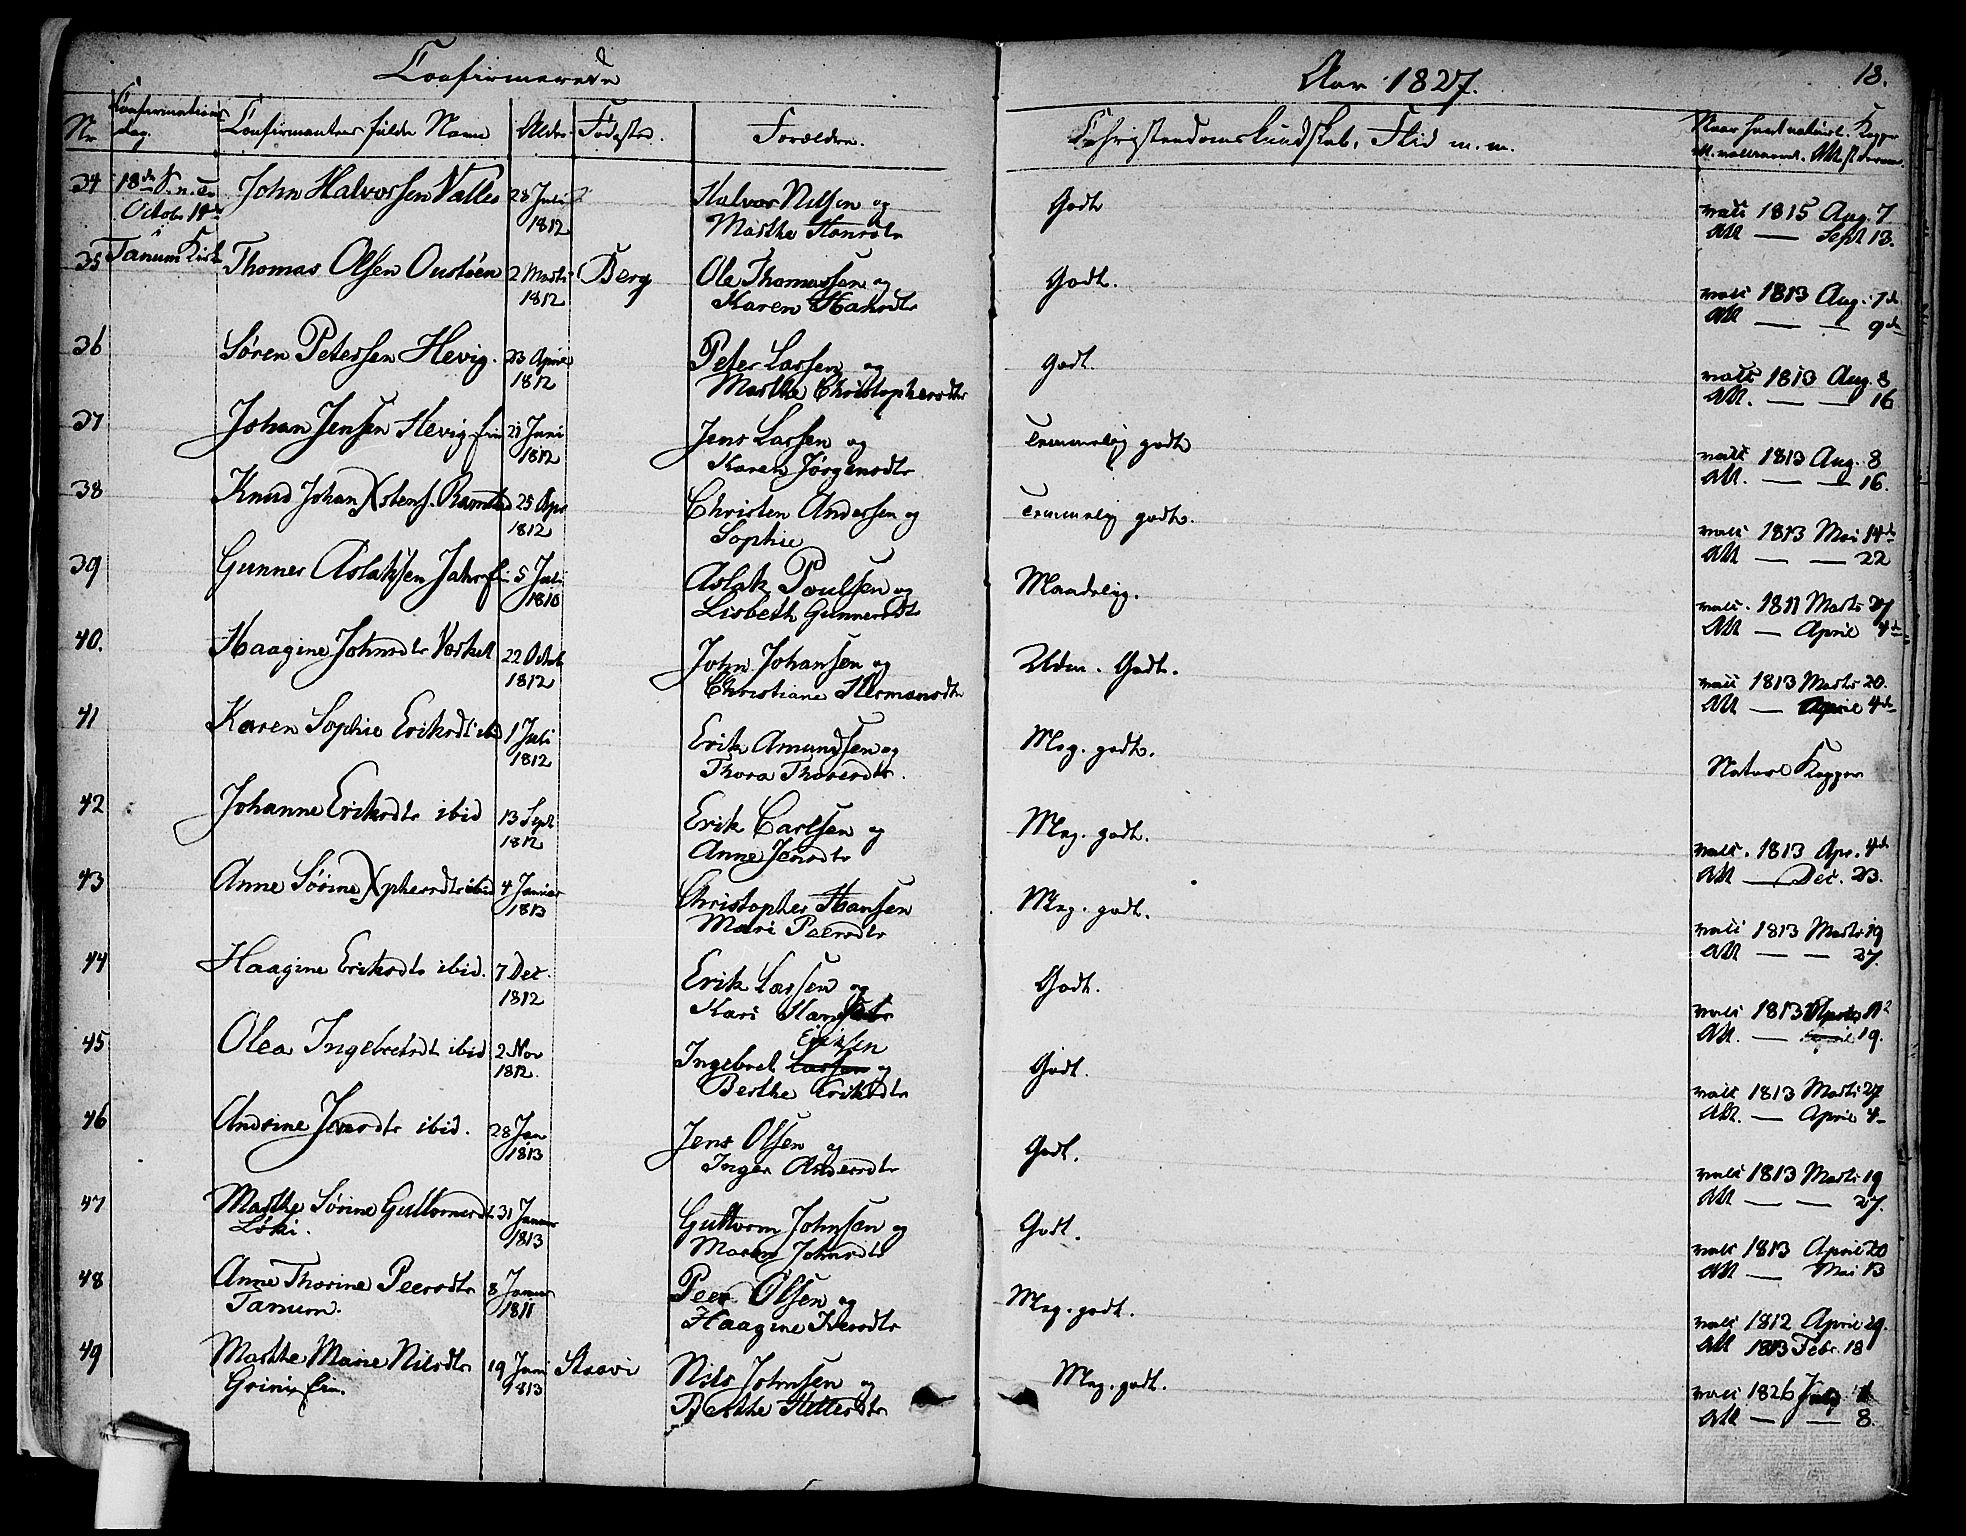 Confirmerede
Aar 1827.
18.
Nr
Confirmations dag.
Confirmantens fulde Navn
Alder
Fødested.
Forældre.
Christendomskundskab, Flid m. m.
Naar havt naturl. Kopper
ell. vaccineret. Att. derom
34 18de S. n. Tr. John Halvorsen Valles 28 Juli Halvor Nilsen og Godt vacc 1815 Aug. 7
Octobr 14de 1812 Marthe Hansdtr Att — Sept 13.
35 Tanum Kirke Thomas Olsen Oustøen 2 Marts Berg Ole Thomassen og Godt. vacc 1813 Aug. 7de
1812 Karen Hansdtr Att — — 9de
36 Søren Petersen Hevig. 23 April Peter Larsen og Godt. vacc 1813 Aug. 8
1812 Marthe Christophersdtr Att. — — 16
37 Johan Jensen Hevig 21 Juni Jens Larsen og temmelig godt vacc 1813 Aug. 8
1812 Karen Jørgensdtr Att. — — 16.
38 Knud Johan Xstens. Ramstad 25 Apr Christen Andersen og temmelig godt. vacc 1813 Mai 14de
1812 Sophie Att — — 22
39 Gunner Aslaksen Jahr 5 Juli Aslak Poulsen og Maadelig. vacc. 1811 Marts 27
1810 Lisbeth Gunnersdtr Att — April 4de
40. Haagine Johnsdtr 22 Octob John Johansen og Udm. Godt. vacc 1813 Marts 20.
1812 Christiane Hermansdtr Att — April 4de
41 Karen Sophie Eriksdt ibid 1 Juli Erik Amundsen og Meg. godt. Naturl Kopper
1812 Thora Thoresdtr.
42 Johanne Eriksdtr ibid 13 Sept Erik Carlsen og Meg. godt. vacc. 1813 Apr. 4de
1812 Anne Jensdtr Att — Dec. 23.
43 Anne Sørine Xphersdtr ibid 4 Januar Christopher Hansen Meg. godt. vacc 1813 Marts 19
1813 Mari Peersdtr Att — — 27.
44 Haagine Eriksdtr ibid. 7 Dec. Erik Larsen og Godt. vacc 1813 11
1812 Kari Att. — 19.
45 Olea Ingebretsdt ibid 2 Nov Ingebret Larsen og Godt. vacc 1813 Marts 27
1812. Berthe Eriksdtr Att. — April 4
46 Andrine Jensdtr ibid. 28 Jan Jens Olsen og Godt. vacc 1813 Marts 19
1813 Inger Andersdtr Att — — 27.
47 Marthe Sørine Guttormsdt 31 Januar Guttorm Johnsen og Godt. vacc 1813 April 20
Løki. 1813 Maren Johnsdtr Att — Mai 13
48 Anne Thorine Peersdtr 8 Januar Peer Olsen og Meg. godt. vacc 1812 April 29.
Tanum. 1811 Haagine Iversdtr Att 1813 Febr. 18
49 Marthe Marie Nilsdtr 19 Juni Staavi Nils Johnsen og Meg. godt. vacc 1826 July 1
Grini 1813 Berthe Hellesdtr Att — — 8.